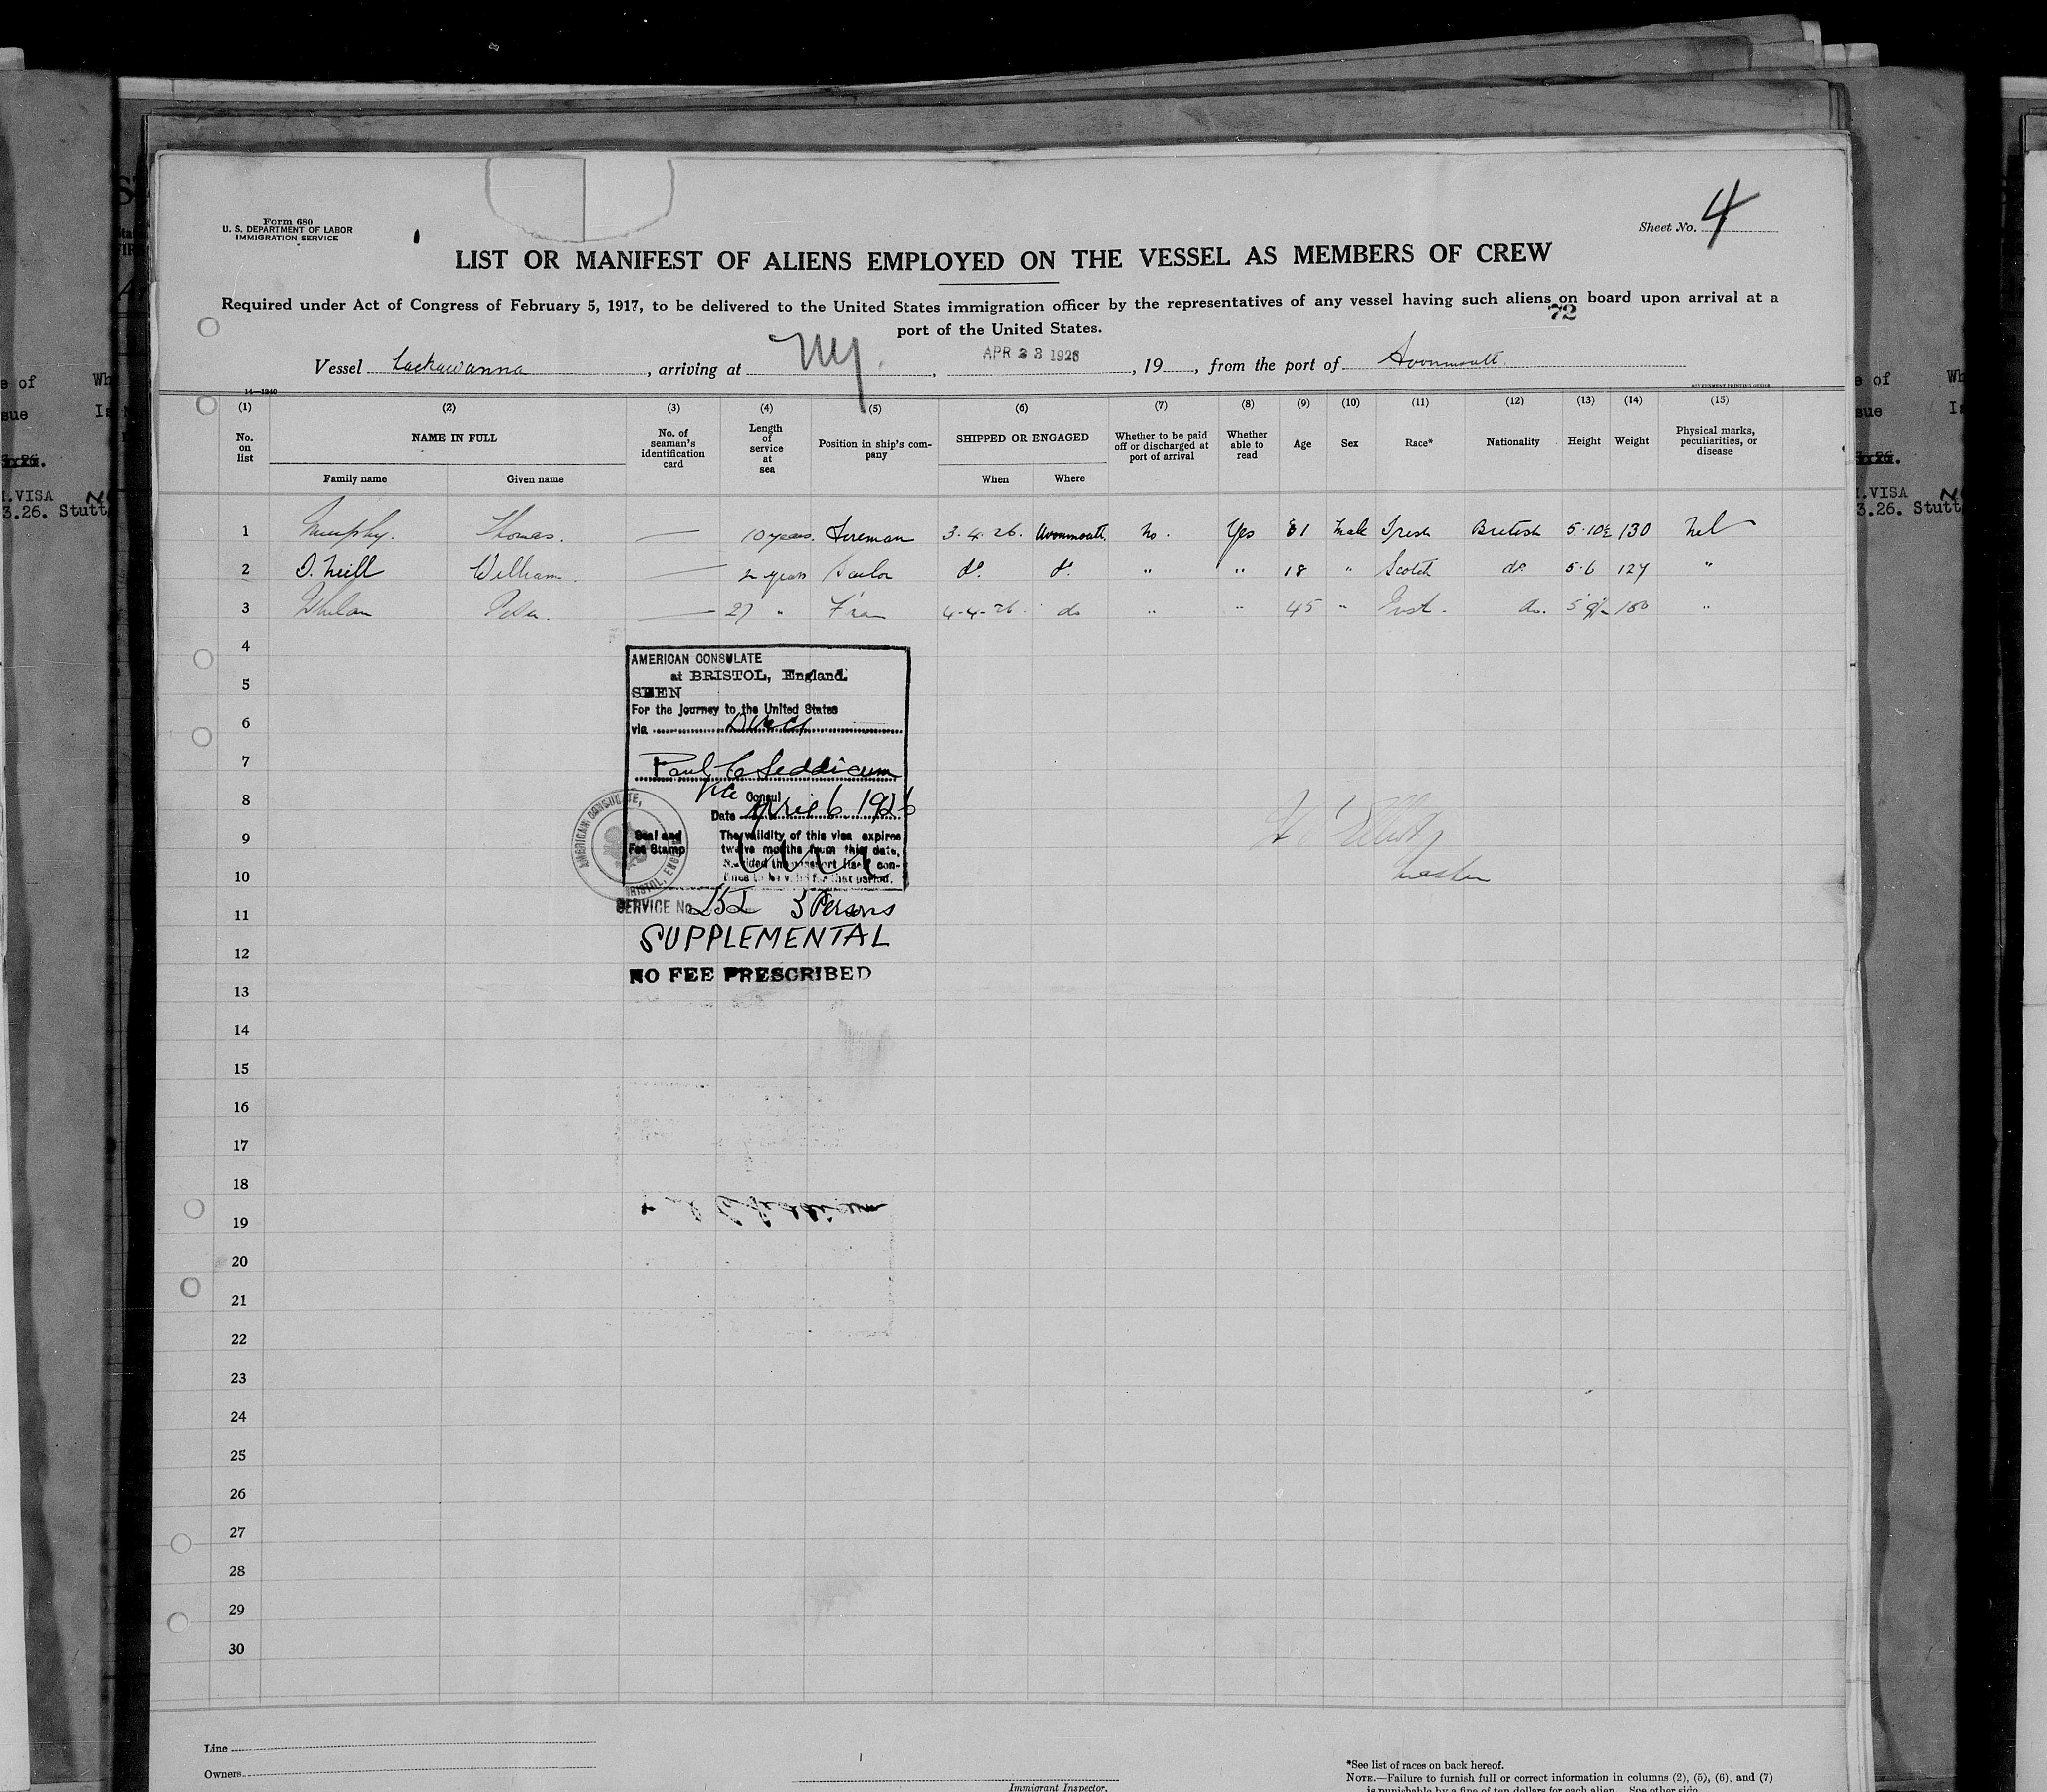 Form 680
U. S. DEPARTMENT OF LABOR
IMMIGRATION SERVICE
Sheet No. 4
LIST OR MANIFEST OF ALIENS EMPLOYED ON THE VESSEL AS MEMBERS OF CREW
Required under Act of Congress of February 5, 1917, to be delivered to the United States immigration officer by the representatives of any vessel having such aliens on board upon arrival at a
port of the United States.
72
Vessel Lackawanna, arriving at NY, APR 23 1926, 19, from the port of Avonmouth.
14—1240
GOVERNMENT PRINTING OFFICE
(1) (2) (3) (4) (5) (6) (7) (8) (9) (10) (11) (12) (13) (14) (15)
No. on list NAME IN FULL No. of seaman's identification card Length of service at sea Position in ship's company SHIPPED OR ENGAGED Whether to be paid off or discharged at port of arrival Whether able to read Age Sex Race* Nationality Height Weight Physical marks, peculiarities, or disease
Family name Given name When Where
1 Murphy. Thomas. — 10 years. Fireman 3.4.26. Avonmouth. No. Yes 31 Male Irish British 5.10½ 130 Nil
2 O.Neill William. — 2 years Sailor do. do. " " 18 " Scotch do 5.6 127 "
3 Whelan Peter. — 27 " F'man 4-4-26. do " " 45 " Irish. do. 5 9½ 160 "
4
5
6
7
8
9
10
11
12
13
14
15
16
17
18
19
20
21
22
23
24
25
26
27
28
29
30
AMERICAN CONSULATE
at BRISTOL, England.
SEEN
For the journey to the United States
via Direct
Paul C Seddicum
Vice Consul
Date April 6 1926
Seal and
Fee Stamp
The validity of this visa expires
twelve months from this date,
Provided the passport itself con-
tinues to be valid for that period.
AMERICAN CONSULATE, BRISTOL, ENGLAND
SERVICE No. 252 3 Persons
SUPPLEMENTAL
NO FEE PRESCRIBED
Elliott
Master
Line
Owners
Immigrant Inspector.
*See list of races on back hereof.
NOTE.—Failure to furnish full or correct information in columns (2), (5), (6), and (7)
is punishable by a fine of ten dollars for each alien. See other side.